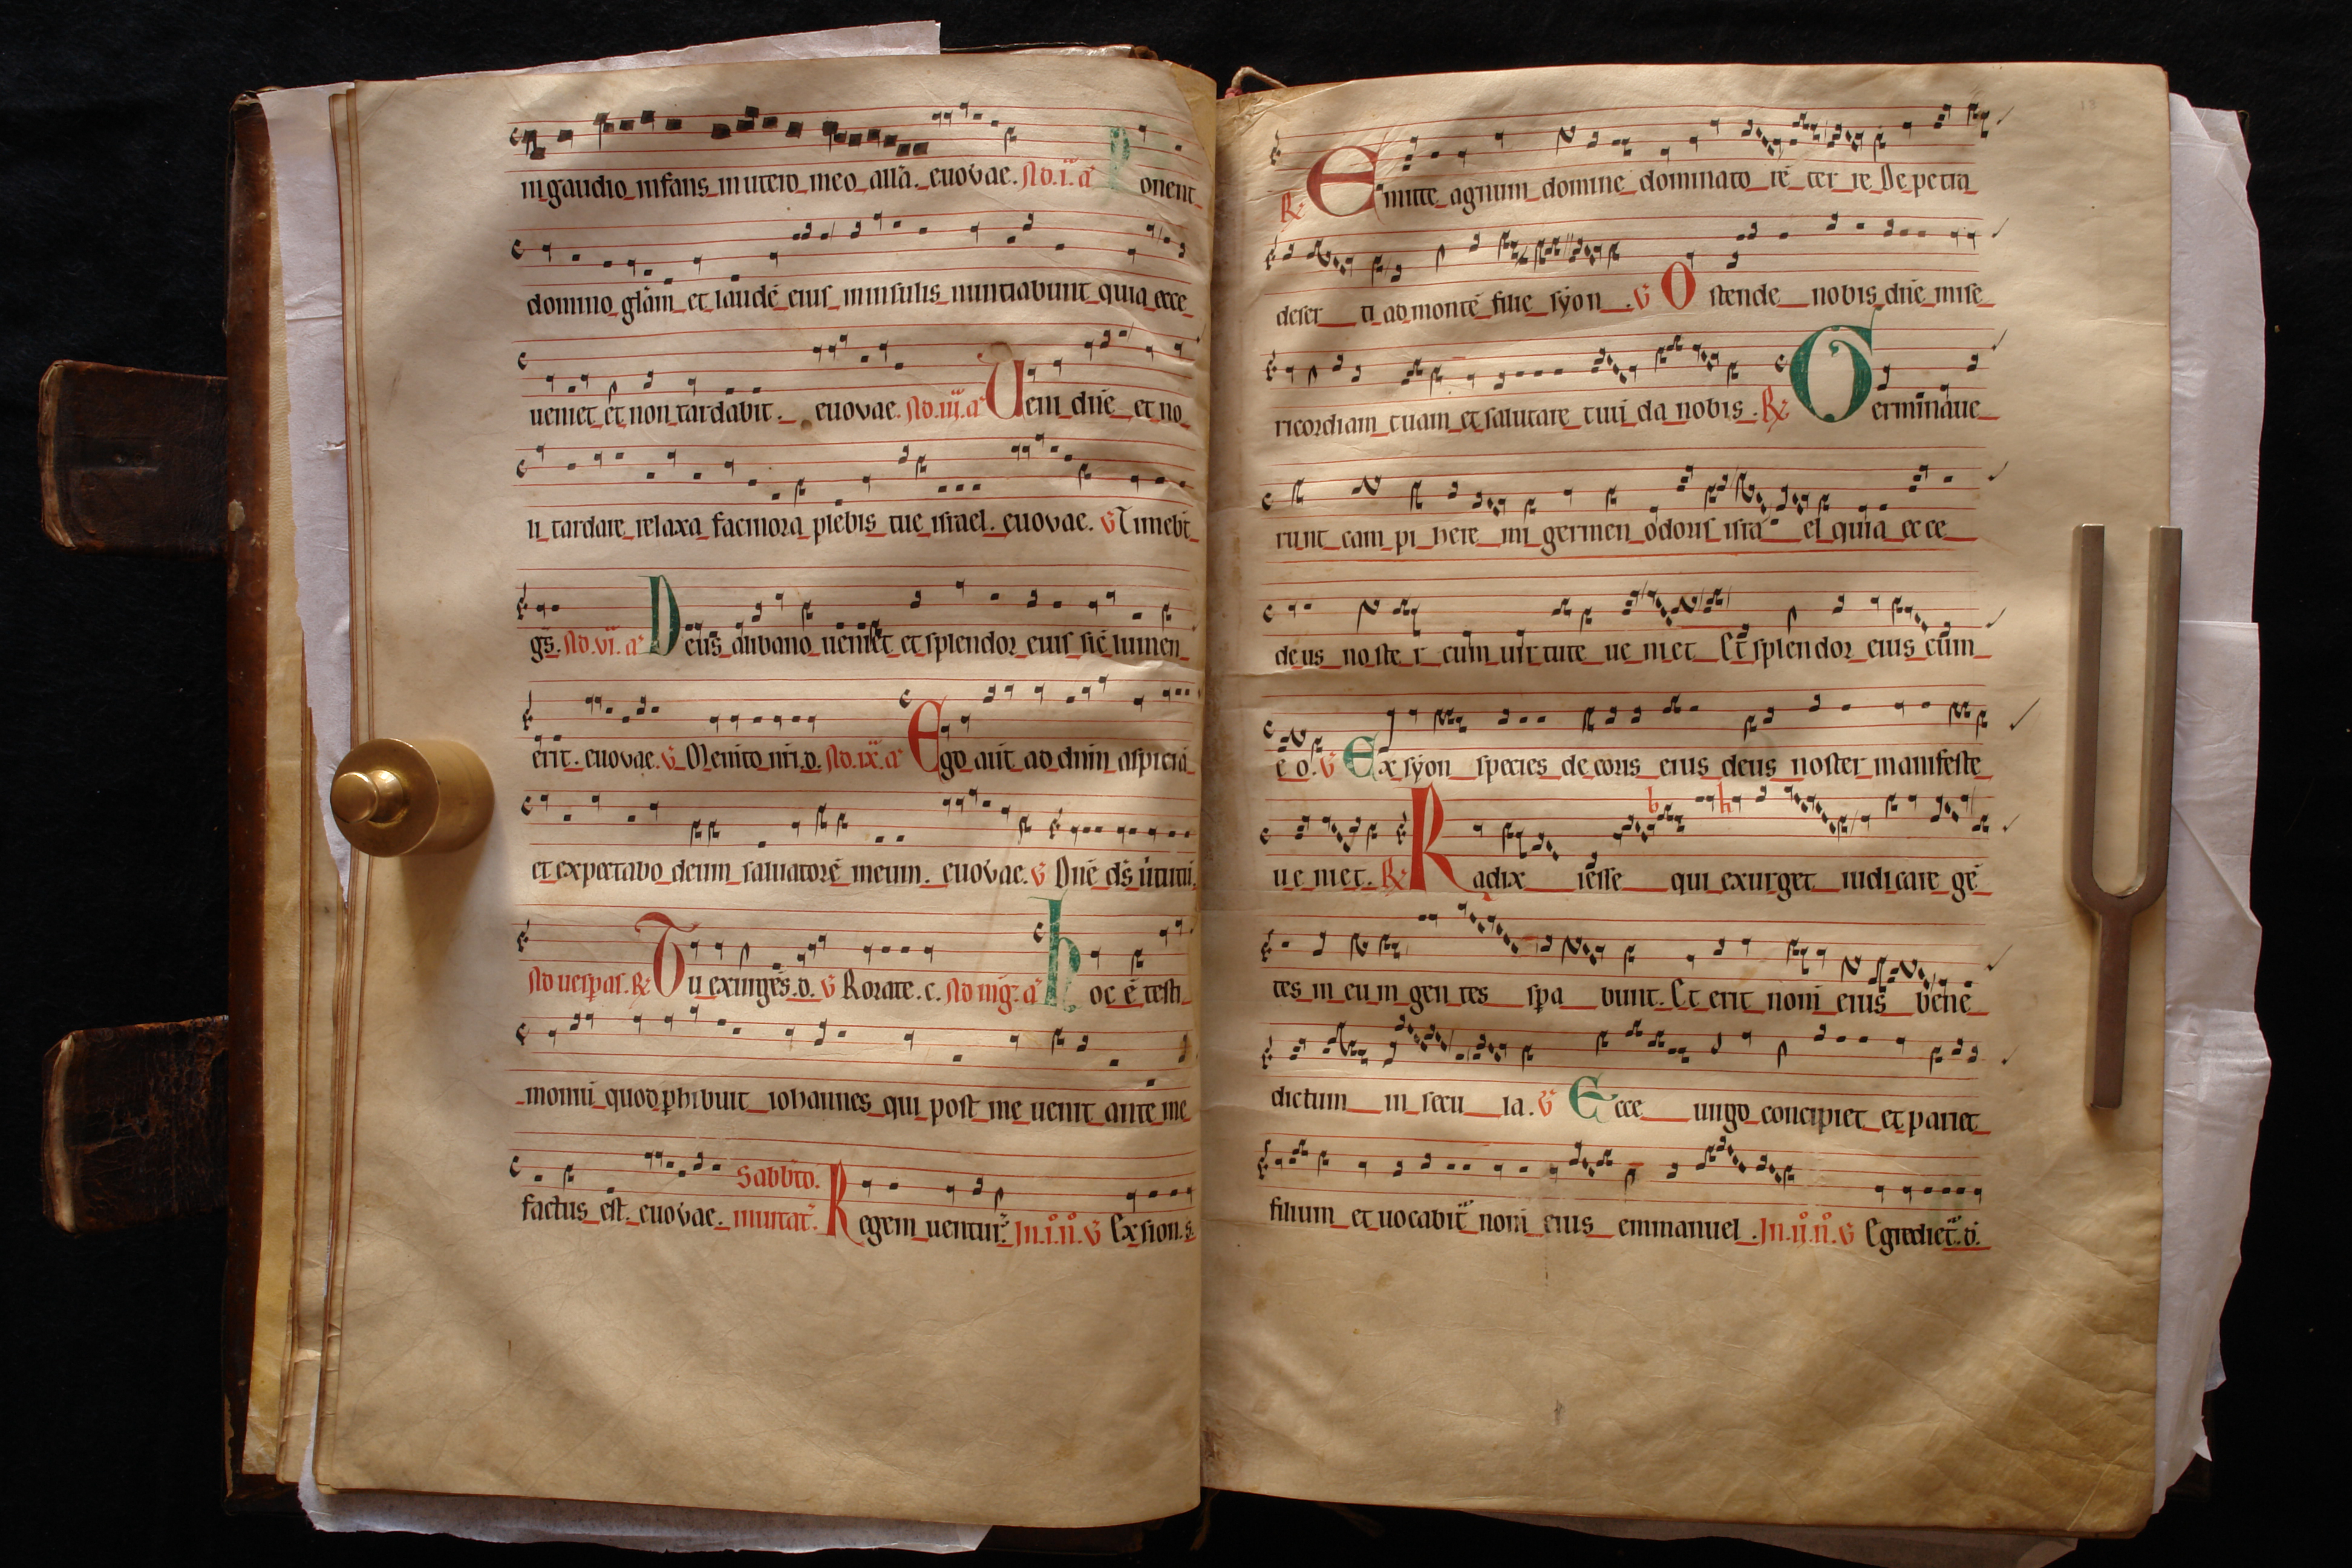 in gaudio infans in utero meo allā. euovae. Ad .i. a Ponent
domino glām et laudē eius in insulis nuntiabunt quia ecce
ueniet et non tardabit. euovae. Ad .iii. a Ueni dn̄e et no
li tardare relaxa facinora plebis tue israel. euovae. V Timebt̄
gs̄. Ad .vi. a Deus a libano ueniet et splendor eius sic̄ lumen
erit. euovae. V Memto nr̄i. d. Ad .ix. a Ego aut̄ ad dn̄m aspiciā
et expectabo deum saluatorē meum. euovae. V Dn̄e ds̄ uirtutū.
Ad uesp̄as. R Tu exurgēs. d. V Rorate. c. Ad mḡ. a hoc ē testi
moniū quod phibuit iohannes qui post me uenit ante me
factus est. euovae. Sabbt̄o. inuitat̄. Regem uentur̄. In .i. n̊. V Ex sion. s.
18
R Emitte agnum domine dominato rē ter re De petra
deser ti ad montē filie sẏon. V Ostende nobis dn̄e mise
ricordiam tuam et salutare tuū da nobis. R Germinaue
runt campi here mi germen odoris isra el quia ec ce
de us noste r cum uir tute ue niet Et splendor eius cum
e o. V Ex sẏon species decoris eius deus noster manifeste
ue niet. R Radix iesse qui exurget iudicare gē
b h
tes in eum gen tes spa bunt. Et erit nom̄ eius bene
dictum in secu la. V Ecce uirgo concipiet et pariet
filium et uocabit̄ nom̄ eius emmanuel. In .ii. n̊. V Egrediet̄. d.